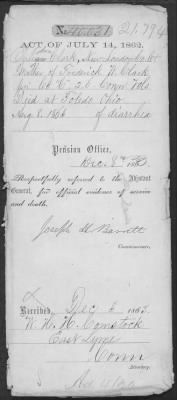 No 40,031 21,794
ACT OF JULY 14, 1862.
Clark, New London
Mother of Frederick W. Clark
Co. C 26 Conn Vols
Died at Toledo Ohio
Aug 8. 1863 of diarrhea
Pension Office,
Dec. 8th 1863.
Respectfully referred to the Adjutant
General, for official evidence of service
and death.
Joseph H Barrett
Commissioner.
Received, Dec 2 1863.
W. H. H. Comstock
East Lyme
Conn
Attorney.